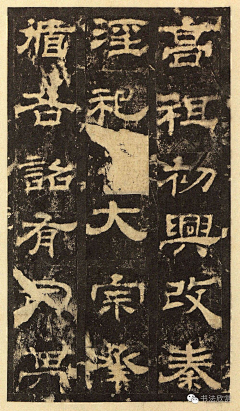 高祖初興改秦
淫祀大宗承
循各詔有司其
书法欣